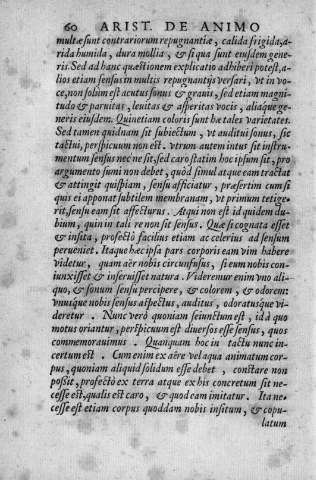 60 ARIST. DE ANIMO
multæ sunt contrariorum repugnantiæ, calida frigida, a-
rida humida, dura mollia, & si qua sunt eiusdem gene-
ris. Sed ad hanc quæstionem explicatio adhiberi potest, a-
lios etiam sensus in multis repugnantijs versari, vt in vo-
ce, non solùm est acutus sonus & grauis, sed etiam magni-
tudo & paruitas, leuitas & asperitas vocis, aliaque ge-
neris eiusdem. Quinetiam coloris sunt hæ tales varietates.
Sed tamen quidnam sit subiectum, vt auditui sonus, sic
tactui, perspicuum non est. vtrum autem intus sit instru-
mentum sensus nec ne sit, sed caro statim hoc ipsum sit, pro
argumento sumi non debet, quòd simul atque eam tractat
& attingit quispiam, sensu afficiatur, præsertim cum si
quis ei apponat subtilem membranam, vt primum tetige-
rit, sensu eam sit affecturus. Atqui non est id quidem du-
bium, quin in tali re non sit sensus. Quæ si cognata esset
& insita, profectò facilius etiam ac celerius ad sensum
perueniet. Itaque hæc ipsa pars corporis eam vim habere
videtur, quam aër nobis circunfusus, si eum nobis con-
iunxisset & inseruisset natura. Videremur enim vno ali-
quo, & sonum sensu percipere, & colorem, & odorem:
vnusque nobis sensus aspectus, auditus, odoratusque vi-
deretur. Nunc verò quoniam seiunctum est, id à quo
motus oriantur, perspicuum est diuersos esse sensus, quos
commemorauimus. Quanquam hoc in tactu nunc in-
certum est. Cum enim ex aëre vel aqua animatum cor-
pus, quoniam aliquid solidum esse debet, constare non
possit, profectò ex terra atque ex his concretum sit ne-
cesse est, qualis est caro, & quod eam imitatur. Ita ne-
cesse est etiam corpus quoddam nobis insitum, & copu-
latum